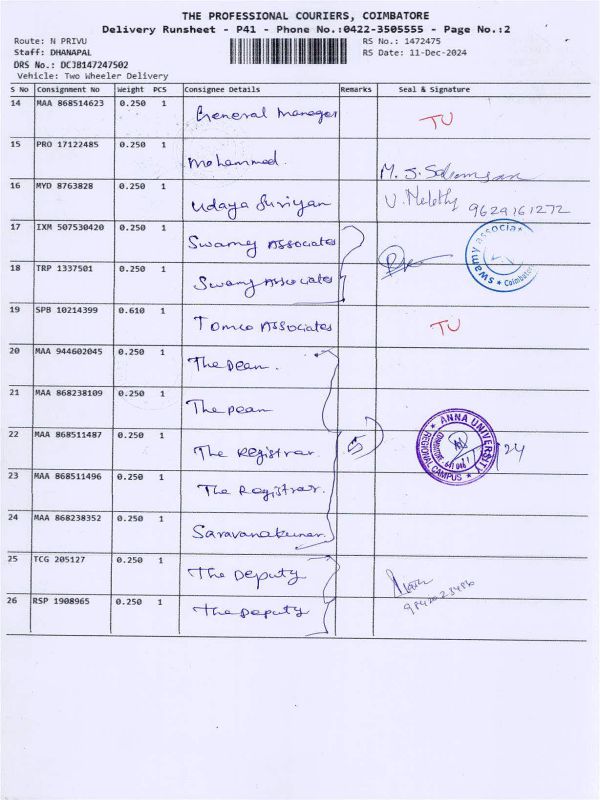 THE PROFESSIONAL COURIERS, COIMBATORE
Delivery Runsheet - P41 - Phone No.:0422-3505555 - Page No.:2
Route: N PRIVU RS No.: 1472475
Staff: DHANAPAL RS Date: 11-Dec-2024
DRS No.: DCJB147247502
Vehicle: Two Wheeler Delivery
S No Consignment No Weight PCS Consignee Details Remarks Seal & Signature
14 MAA 868514623 0.250 1 General Manager TU
15 PRO 17122485 0.250 1 Mohammed.
16 MYD 8763828 0.250 1 Udaya Suriyan 9629161272
17 IXM 507530420 0.250 1 Swamy Associates
18 TRP 1337501 0.250 1 Swamy Associates
swamy associa
Coimbatore
19 SPB 10214399 0.610 1 Tomco Associates TU
20 MAA 944602045 0.250 1 The Dean.
21 MAA 868238109 0.250 1 The Dean
22 MAA 868511487 0.250 1 The Registrar. 5
ANNA UNIVERSITY
REGIONAL CAMPUS
COIMBATORE
641 046
24
23 MAA 868511496 0.250 1 The Registrar.
24 MAA 868238352 0.250 1 Saravanakumar.
25 TCG 205127 0.250 1 The Deputy
26 RSP 1908965 0.250 1 The Deputy